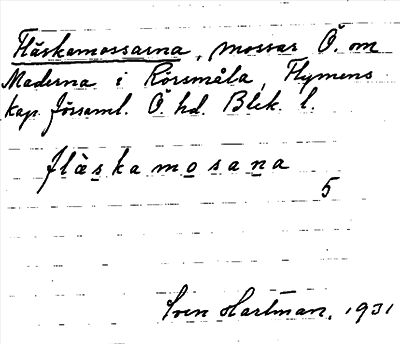 Fläskamossarna, mossar Ö. om
Maderna i Rörsmåla, Flymens
kap. församl. Ö. hd. Blek. l.
fläskamosana
5
Sven Hartman, 1931